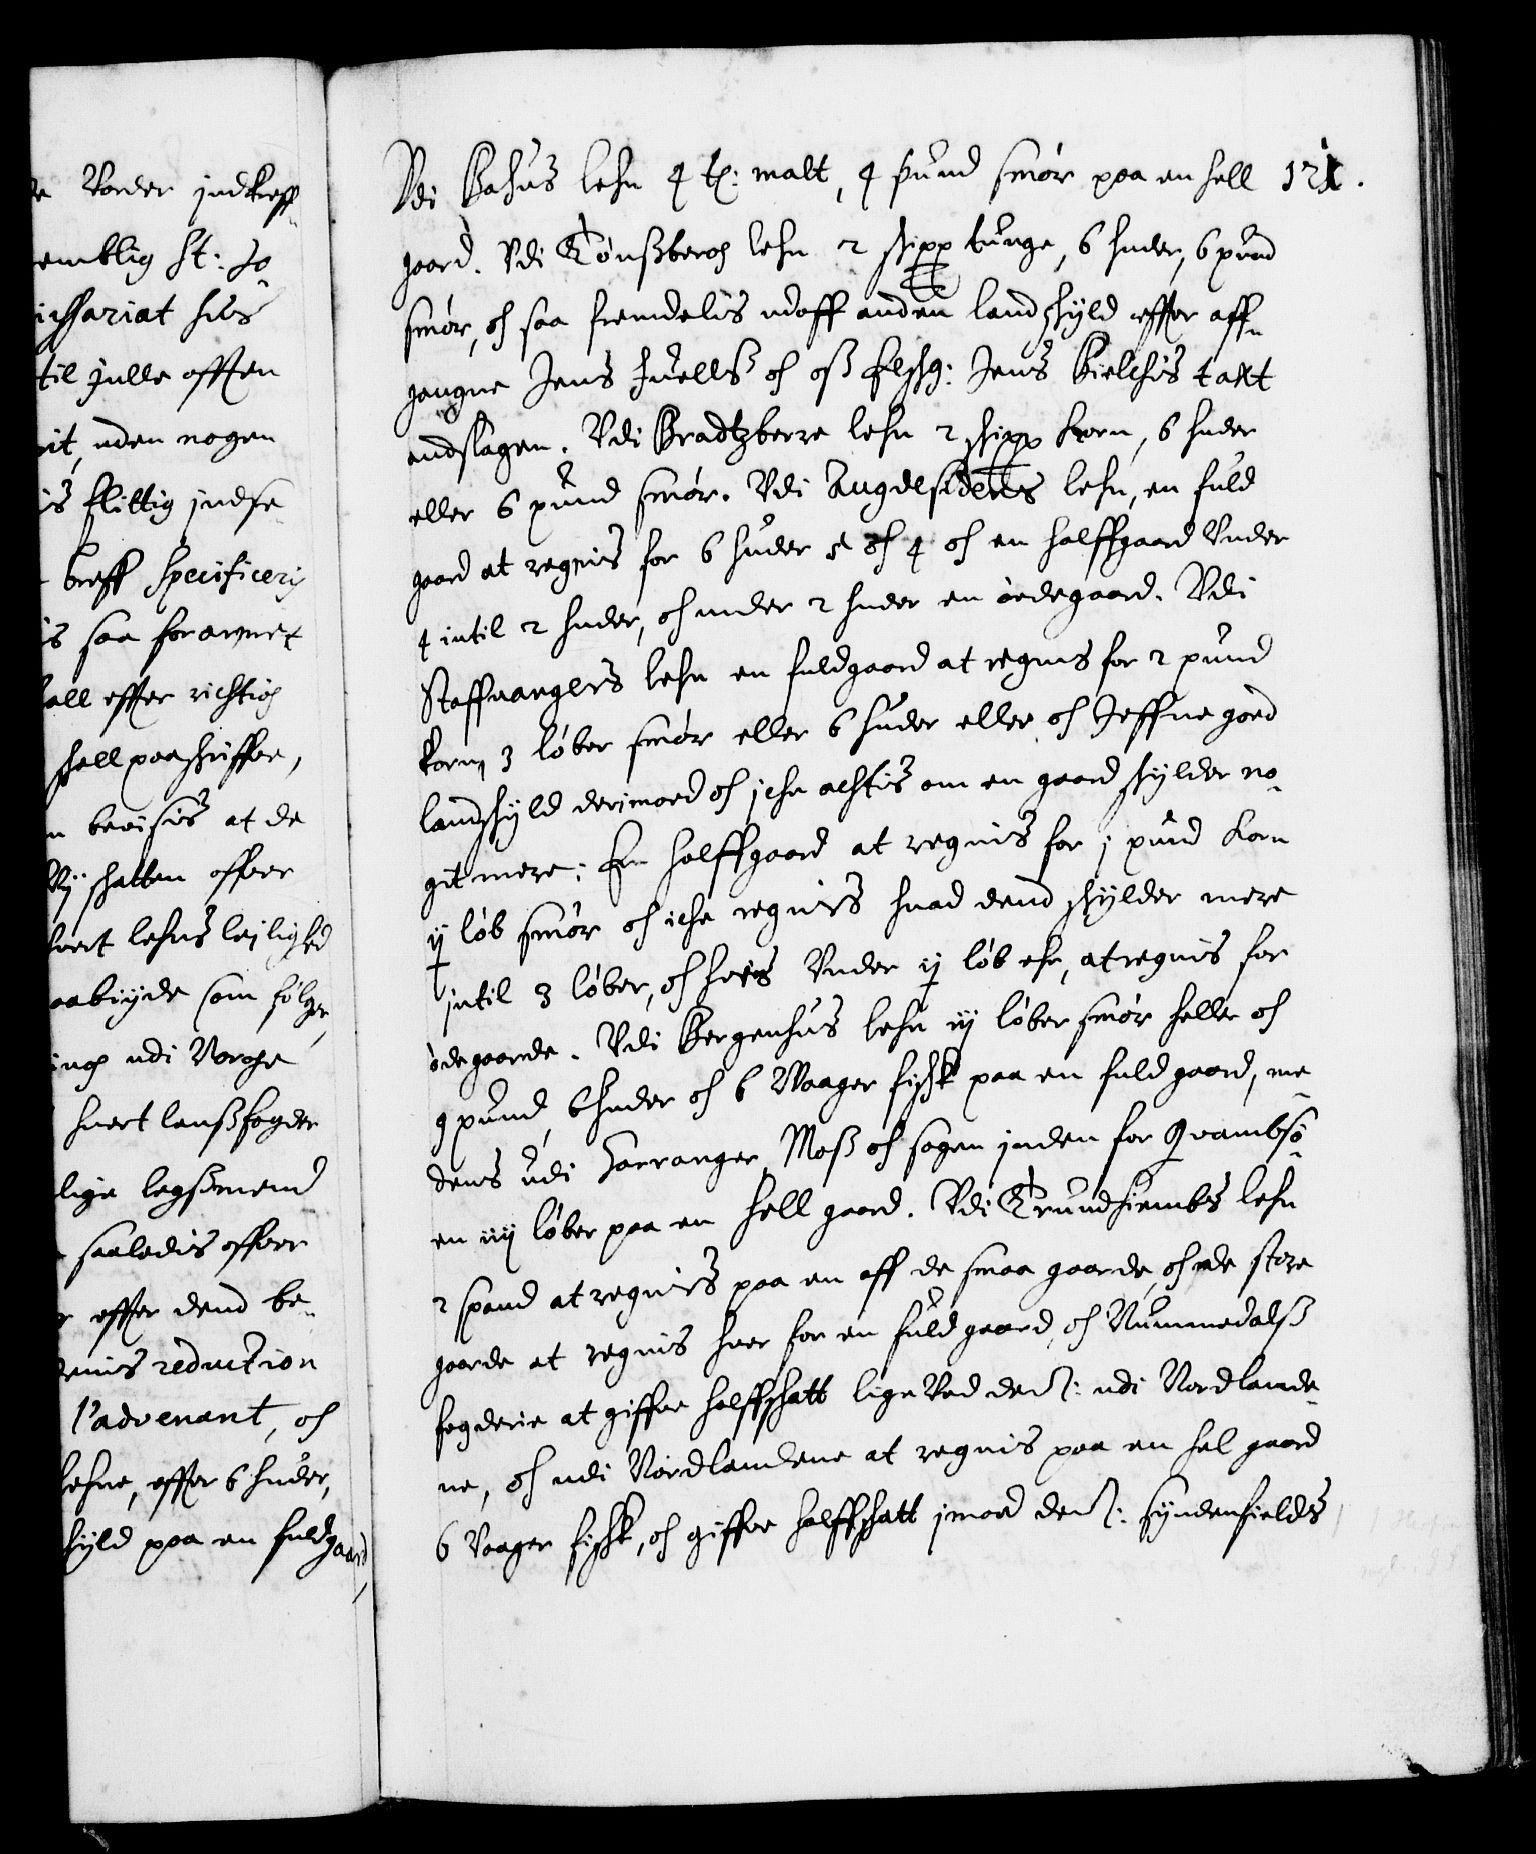 e Vorder jndkreff
emblig St: Jo
ichariat huis
til Julle afften
it, uden nogen
is flittig jndse
breff specificeris
is saa forarmet
all effter richtig
shall paashriffue,
n beuisis at de
Vij shatten offuer
huert lehns lejlighed
aabiyde som følger,
ing udi Norge
huert lanßfogder
lige legßmend
saaledis offuer
effter dend be
enis reduction
l'advenant, oh
lehne, effter 6 huder,
hyld paa en fuldgaard,
Vdi Bahus lehn 4 tø: malt, 4 pund smør paa en hell 121.
gaard. Vdi Tønßberg lehn 2 shipp tunge, 6 huder, 6 pund
smør, oh saa fremdelis udaff anden landshyld effter aff
gangne Jens Juelß oh oß Elshg: Jens Bielchis taxt
andslagen. Vdi Bradtzberre lehn 2 shipp korn, 6 huder
eller 6 pund smør. Vdi Augdesidens lehn, en fuld
gaard at regnis for 6 huder 5 oh 4 oh en halffgaard Vnder
4 intil 2 huder, oh under 2 huder en ødegaard. Vdi
Staffuangers lehn en fuldgaard at regnis for 2 pund
korn, 3 løber smør eller 6 huder eller oh Jeffne goed
landshyld derimoed oh iche achtis om en gaard shylder no
git mere; En halffgaard at regnis for j pund korn
ij løb smør oh iche regnis huad dend shylder mere
jntil 3 løber, oh huis Vnder ij løb ehr, at regnis for
ødegaarde. Vdi Bergenhus lehn iij løber smør heller oh
9 pund, 6 huder oh 6 Waager fishk paa en fuld gaard, me
dens udi Harranger, Moß oh sogen jnden for Qvambsø
en iiij løber paa en hell gaard. Vdi Trundhiembs lehn
2 spand at regnis paa en aff de smaa gaarde, oh de store
gaarde at regnis huer for en fuld gaard, oh Nummedalß
fogderie at giffue halffshatt lige Ved de: udi Nordlande
ne, oh udi Nordlandene at regnis paa en hel gaard
6 Vaager fishk, oh giffue halffshatt jmoed de: syndenfields